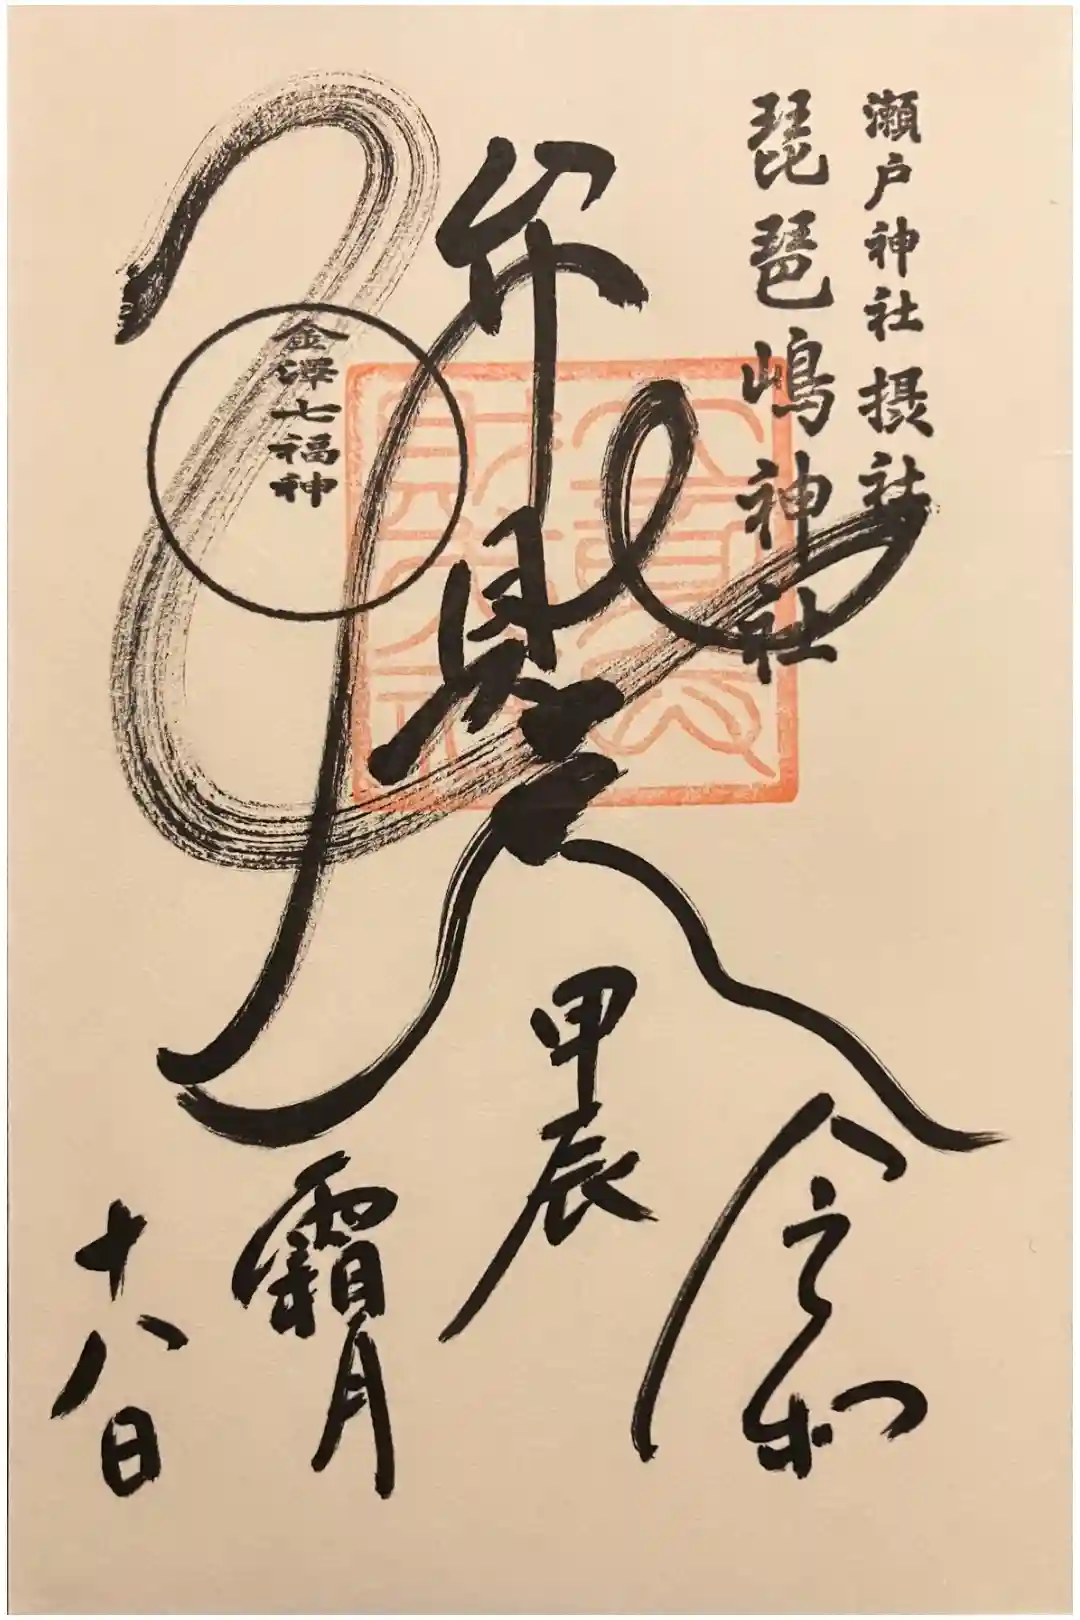 瀬戸神社摂社
琵琶嶋神社
金澤七福神
令和
甲辰
霜月
十八日